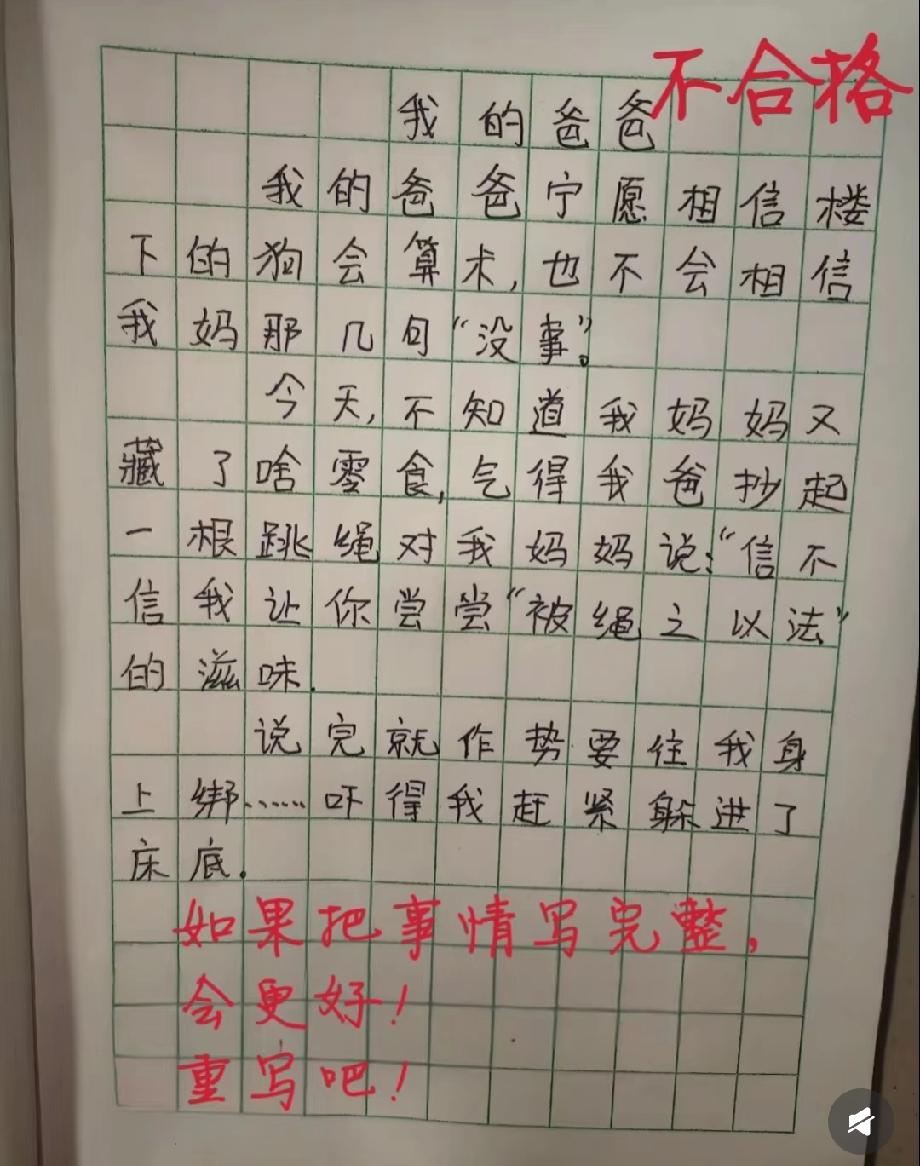 不合格
我的爸爸
我的爸爸宁愿相信楼
下的狗会算术,也不会相信
我妈那几句“没事”。
今天,不知道我妈妈又
藏了啥零食,气得我爸抄起
一根跳绳对我妈妈说:“信不
信我让你尝尝“被绳之以法”
的滋味.
说完就作势要往我身
上绑……吓得我赶紧躲进了
床底.
如果把事情写完整,
会更好!
重写吧!